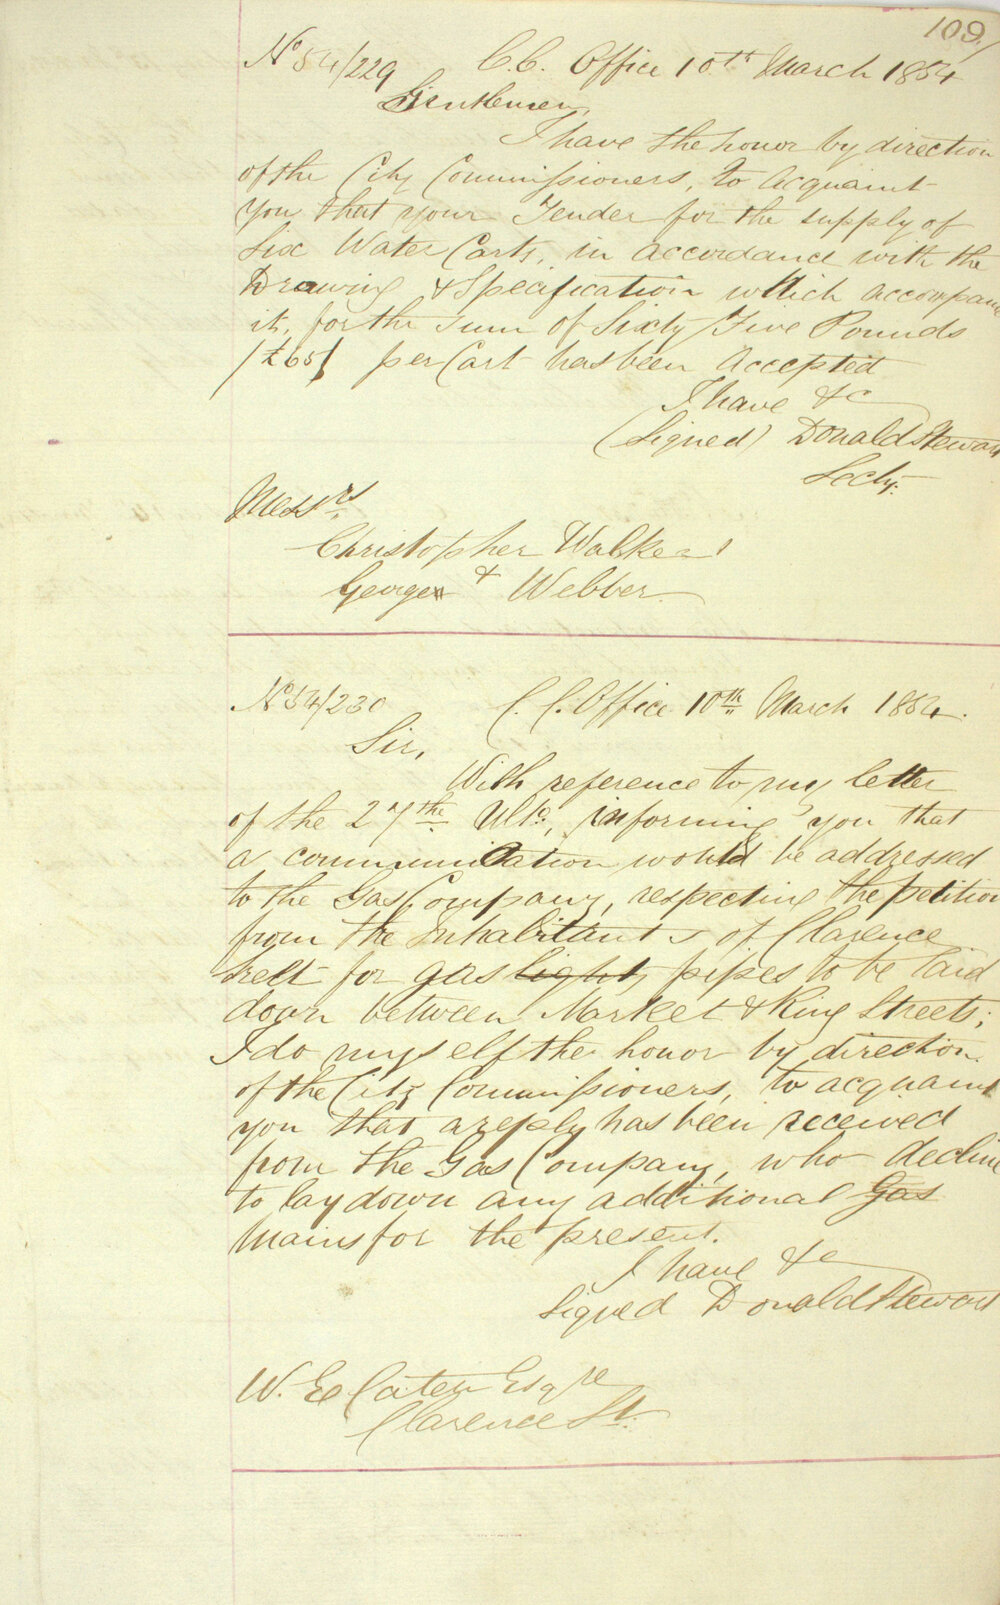 109
No 54/229 C.C. Office 10th March 1854
Gentlemen,
I have the honor by direction
of the City Commissioners, to acquaint
you that your Tender for the supply of
Six Water Carts, in accordance with the
Drawing & Specification which accompan
it, for the sum of Sixty Five Pounds
(£65) per Cart has been accepted
I have &c
(Signed) Donald Stewart
Secty.
Messrs
Christopher Walker
&
George Webber
No 54/230 C. C. Office 10th March 1854.
Sir,
With reference to my letter
of the 27th Ulto, informing you that
a communication would be addressed
to the Gas Company, respecting the petition
from the Inhabitants of Clarence
Treet for gas light pipes to be laid
down between Market & King Streets;
I do myself the honor by direction
of the City Commissioners, to acquaint
you that a reply has been received
from the Gas Company, who decline
to lay down any additional Gas
Mains for the present.
I have &c
Signed Donald Stewart
W. E. Cater Esqre
Clarence St.